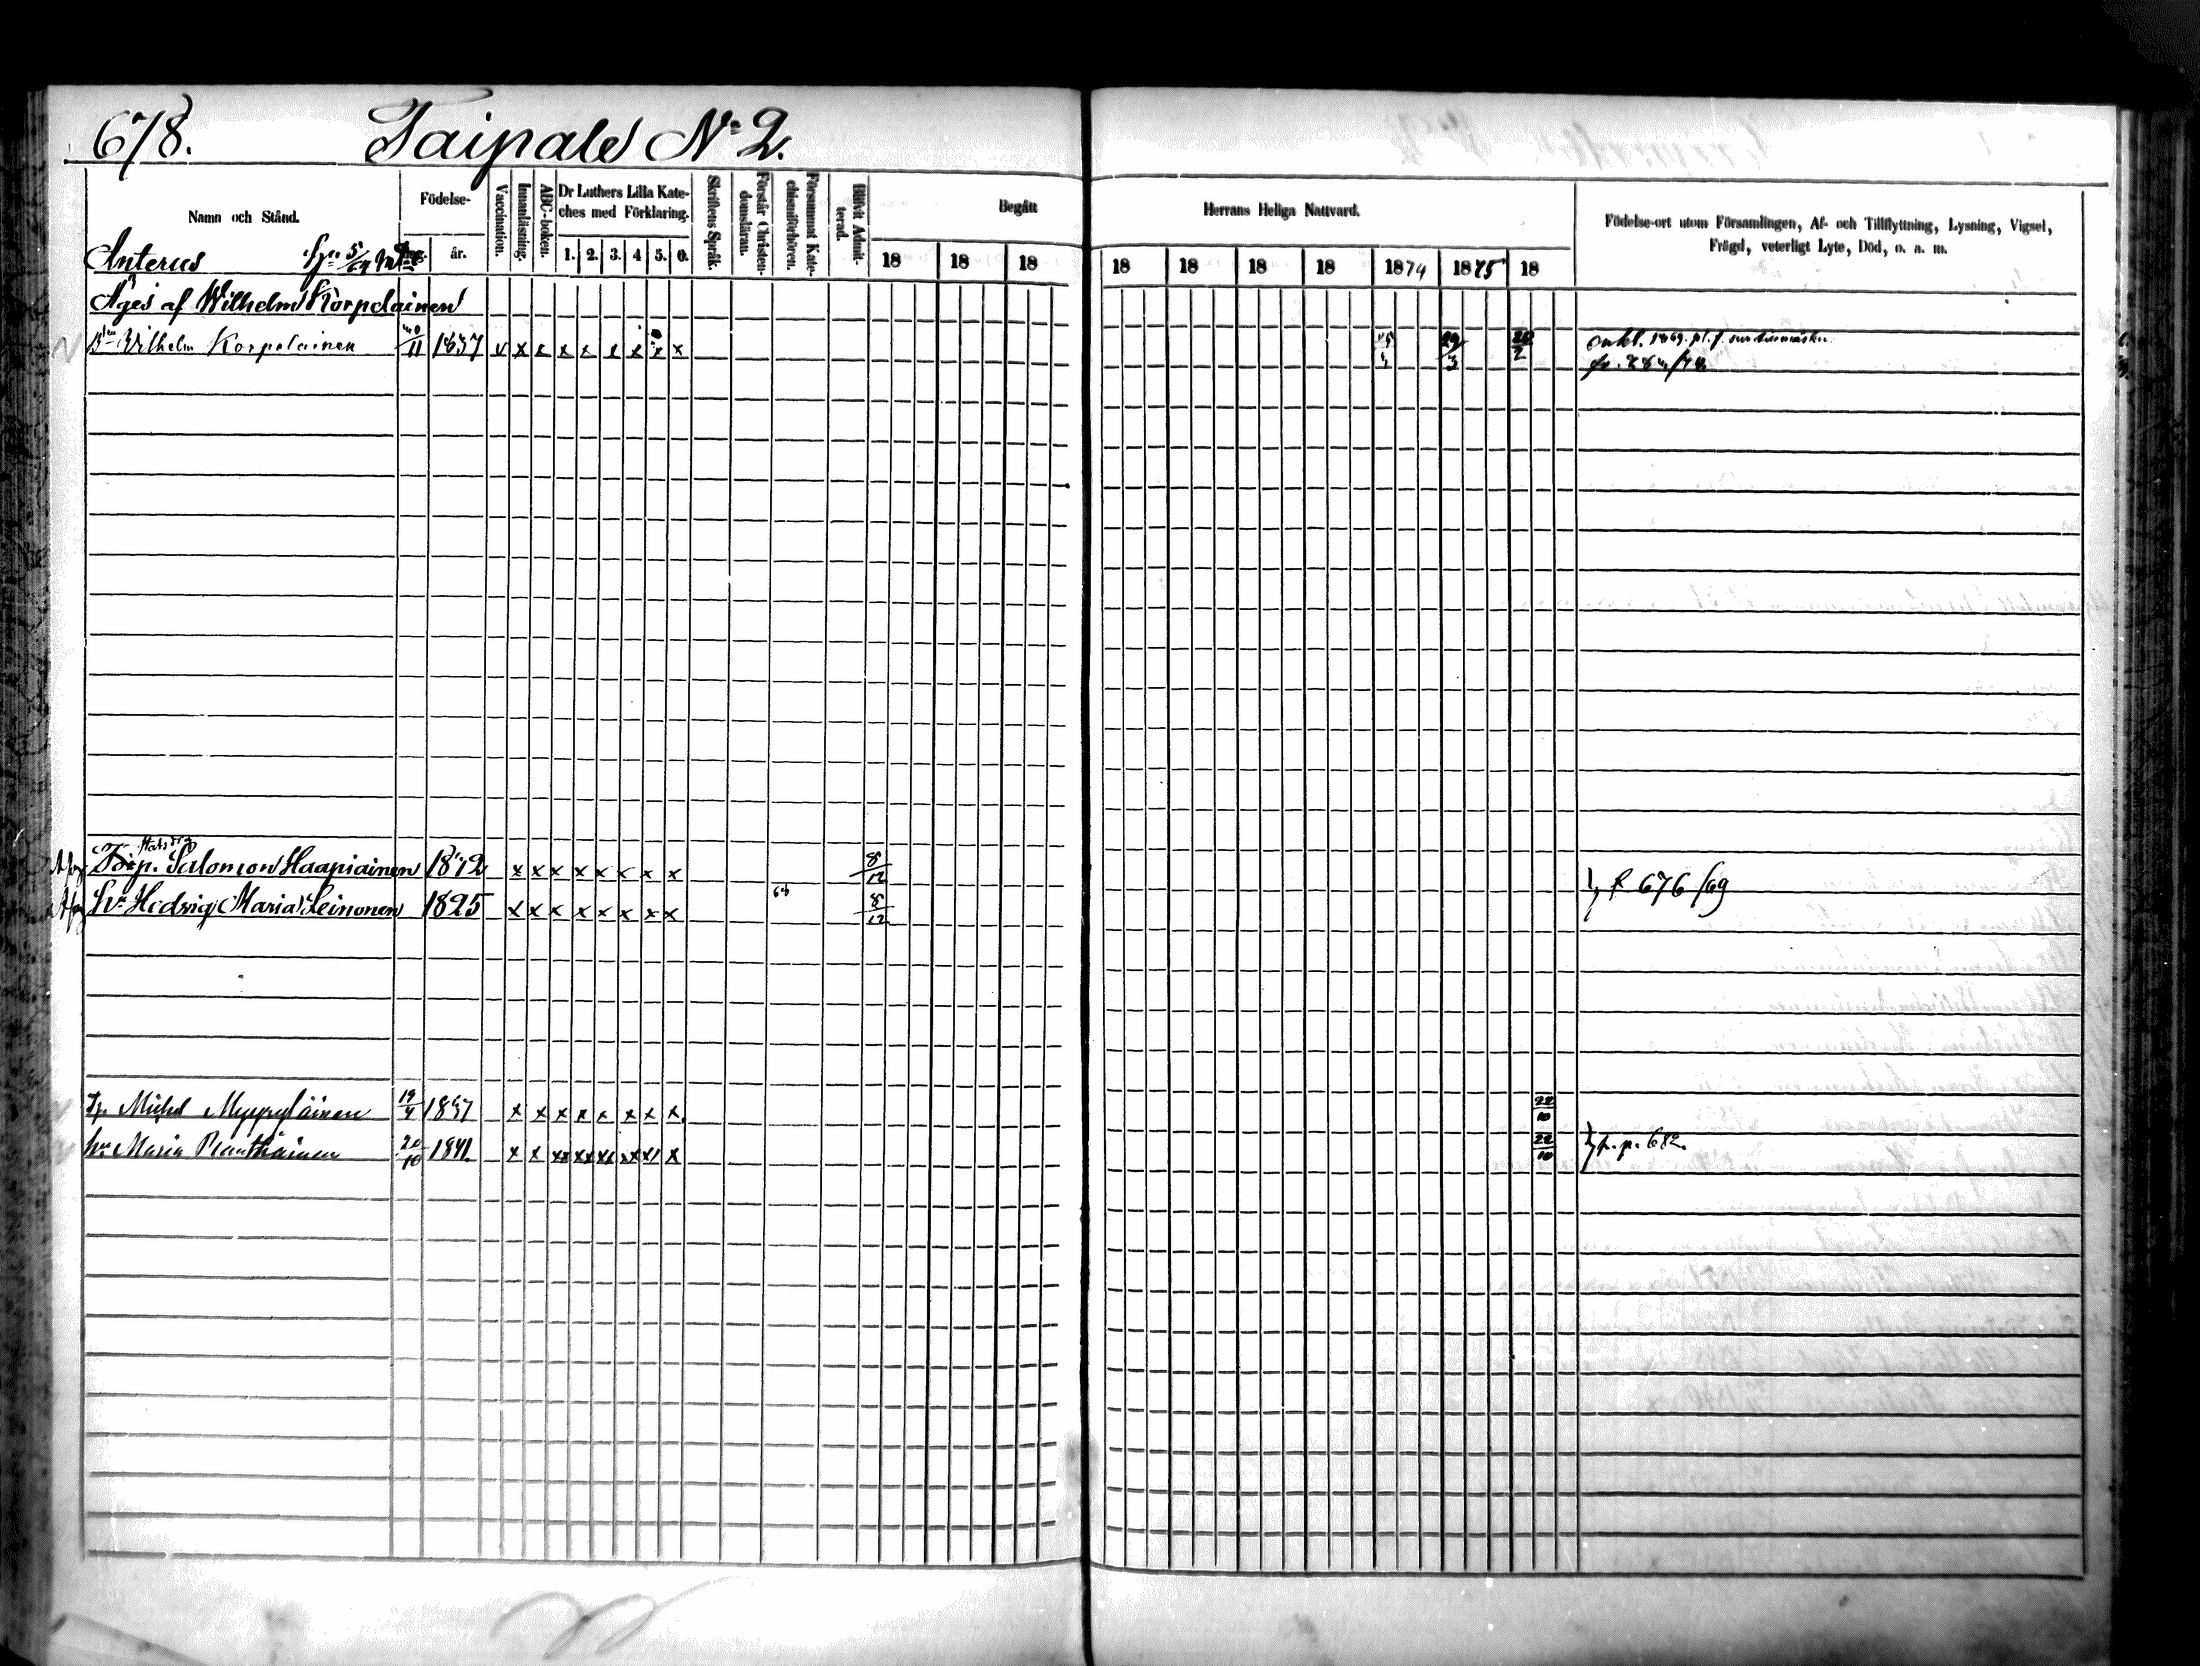 678. Taipale No 2.
Namn och Stånd.
Födelse-
år.
Vaccination.
Innanläsning.
ABC-boken.
Dr Luthers Lilla Kate-
ches med Förklaring.
1. 2. 3. 4 5. 0.
Skriftens Språk.
Förstår Christen-
domsläran.
Försummat Kate-
chismiförhören.
Blifvit Admit-
terad.
Begått
Herrans Heliga Nattvard.
18 18 18 18 18 18 18 1874 1875 18
Födelse-ort utom Församlingen, Af- och Tillflyttning, Lysning, Vigsel,
Frägd, veterligt Lyte, Död, o. a. m.
Anterus 5/64
Äges af Wilhelm Korpelainen
Wilhelm Korpelainen 11 1837 v x x x x x x x x 29/3 20/2
Torp. Salomon Haapiainen x x x x x x x x 8/12
Hu Hedvig Maria Leinonen 1825 x x x x x x x x 64 8/12 f 676/69
Michel Myyryläinen 19 x x x x x x x x 22/10
Hu Maria 20/10 1841. x x xx xx xx xx x 22/10 p. 682.